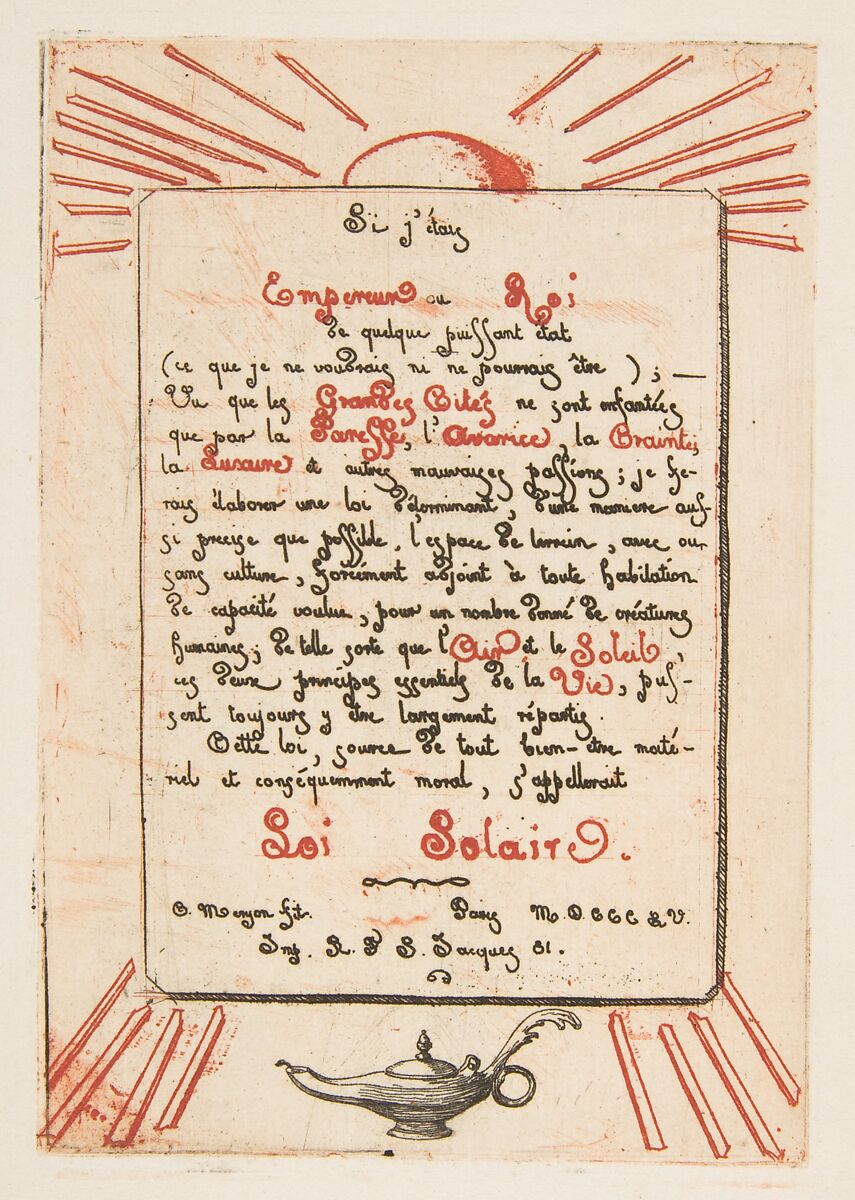 Si j'étais
Empereur ou Roi
de quelque puissant état
(ce que je ne voudrais ni ne pourrais être ) ; —
Vu que les Grandes Cités ne sont enfantées
que par la Paresse, l'Avarice, la Crainte,
la Luxure et autres mauvaises passions ; je fe-
rais élaborer une loi déterminant, d'une maniere aus-
si precise que possible, l'espace de terrein, avec ou
sans culture, forcément adjoint à toute habitation
de capacité voulue, pour un nombre donné de créatures
humaines ; de telle sorte que l'Air et le Soleil,
ces deux principes essentiels de la Vie, puis-
sent toujours y être largement répartis.
Cette loi, source de tout bien-être maté-
riel et conséquemment moral, s'appellerait
Loi Solaire.
C. Meryon fit. Paris M.D.CCC.LV.
Imp. R. S. Jacques 81.